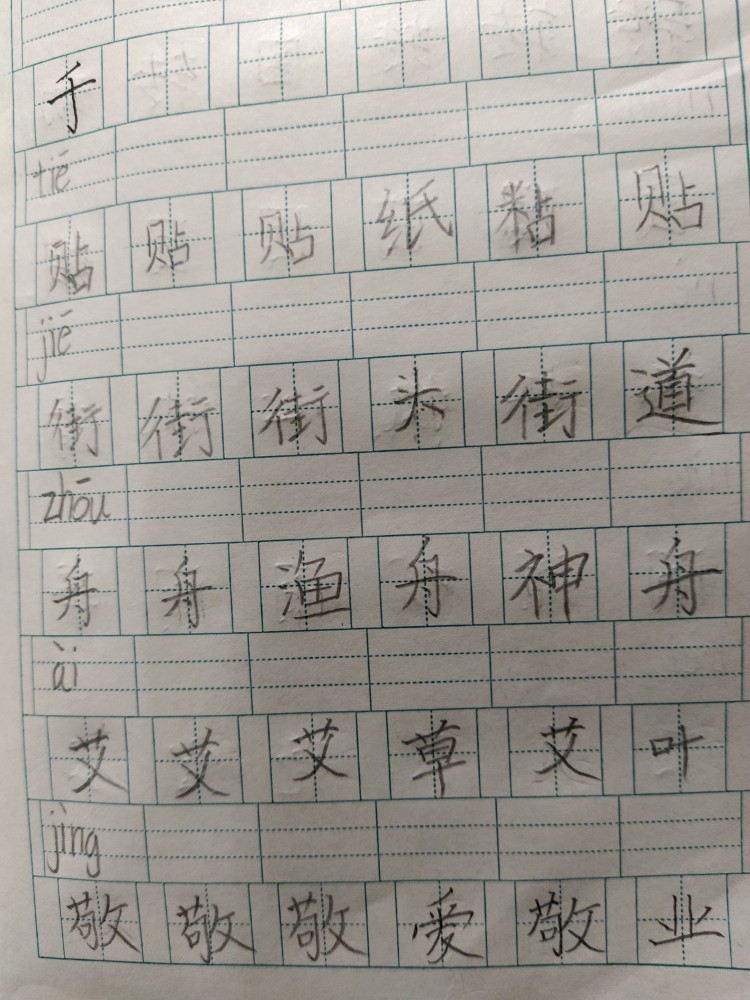 手
tiē
贴贴贴纸粘贴
jiē
街街街头街道
zhōu
舟舟渔舟神舟
ài
艾艾艾草艾叶
jìng
敬敬敬爱敬业